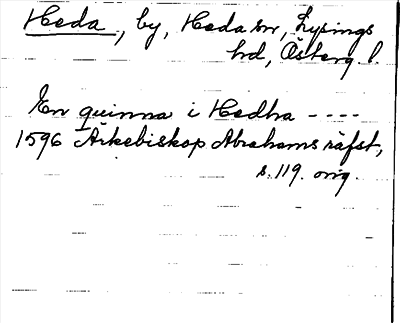 Heda, by, Heda sn, Lysings
hd, Österg. l.
En quinna i Hedha ----
1596 Ärkebiskop Abrahams räfst,
s. 119. orig.